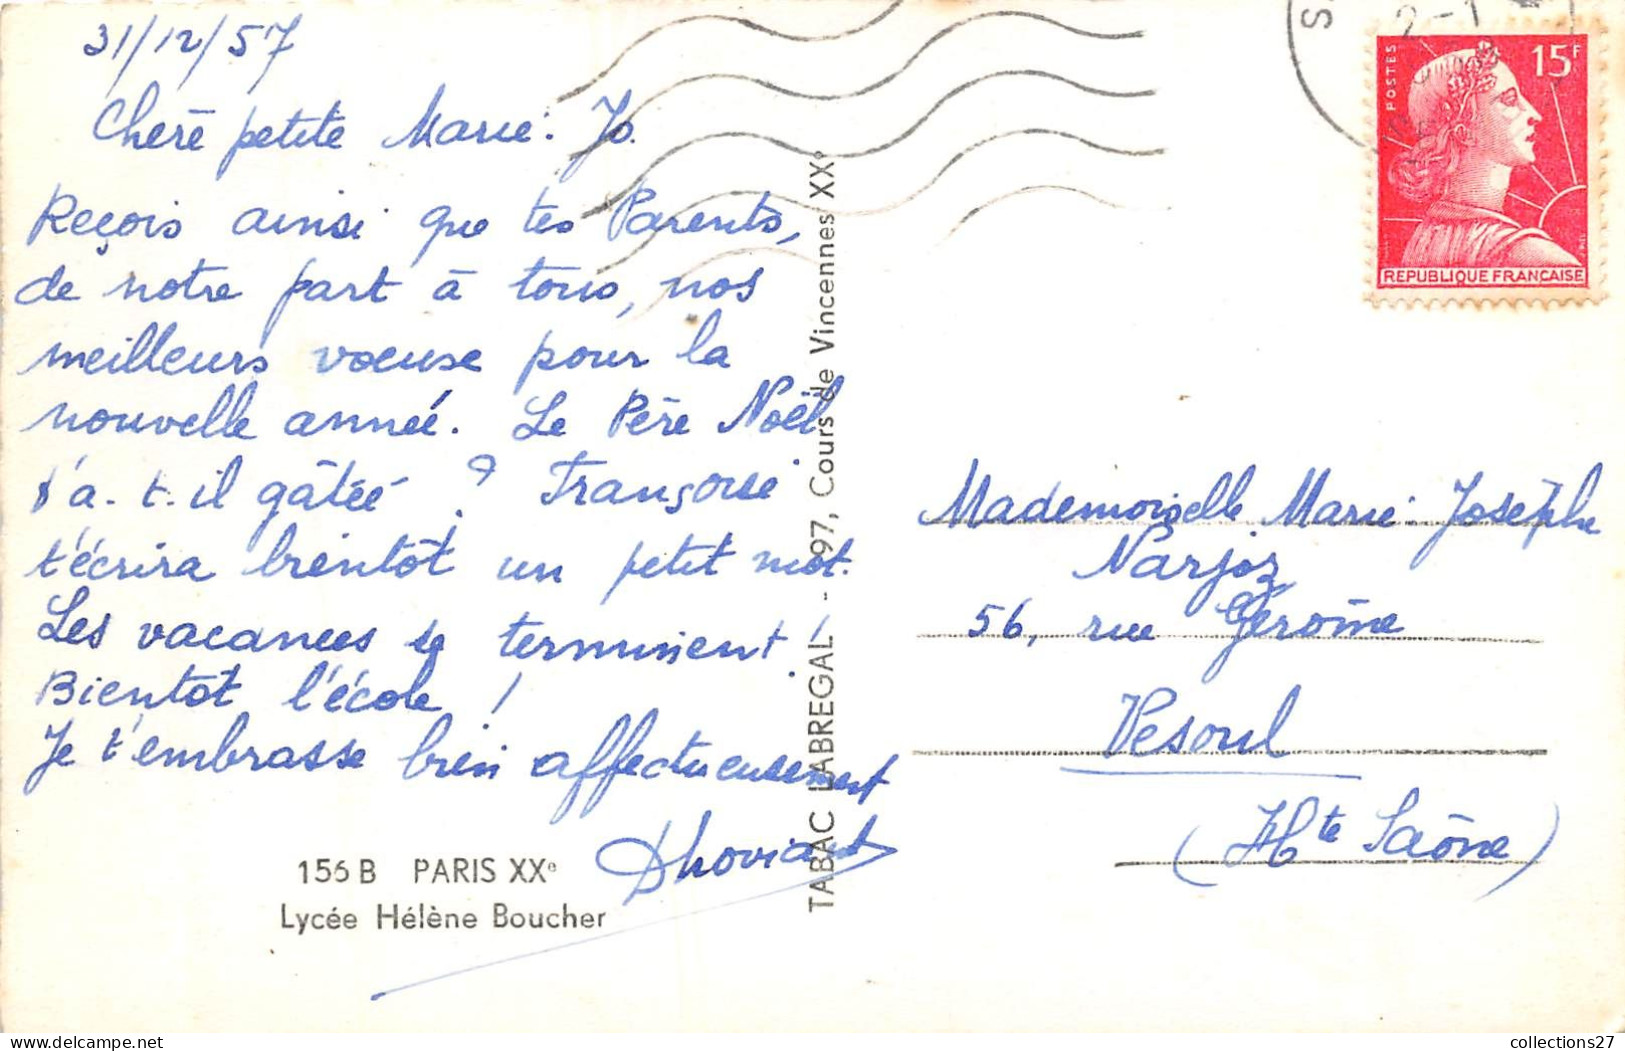 31/12/57
Chère petite Marie-Jo.
Reçois ainsi que tes Parents,
de notre part à tous, nos
meilleurs voeuse pour la
nouvelle année. Le Père Noël
t'a-t-il gâtée ? Françoise
t'écrira bientôt un petit mot.
Les vacances se terminent.
Bientôt l'école !
Je t'embrasse bien affectueusement
156 B PARIS XXe
Lycée Hélène Boucher
TABAC LABREGAL - 97, Cours de Vincennes XXe
2-1
POSTES
15F
REPUBLIQUE FRANCAISE
Mademoiselle Marie-Josèphe
Narjoz
56, rue Gérôme
Vesoul
(Hte Saône)
collections27